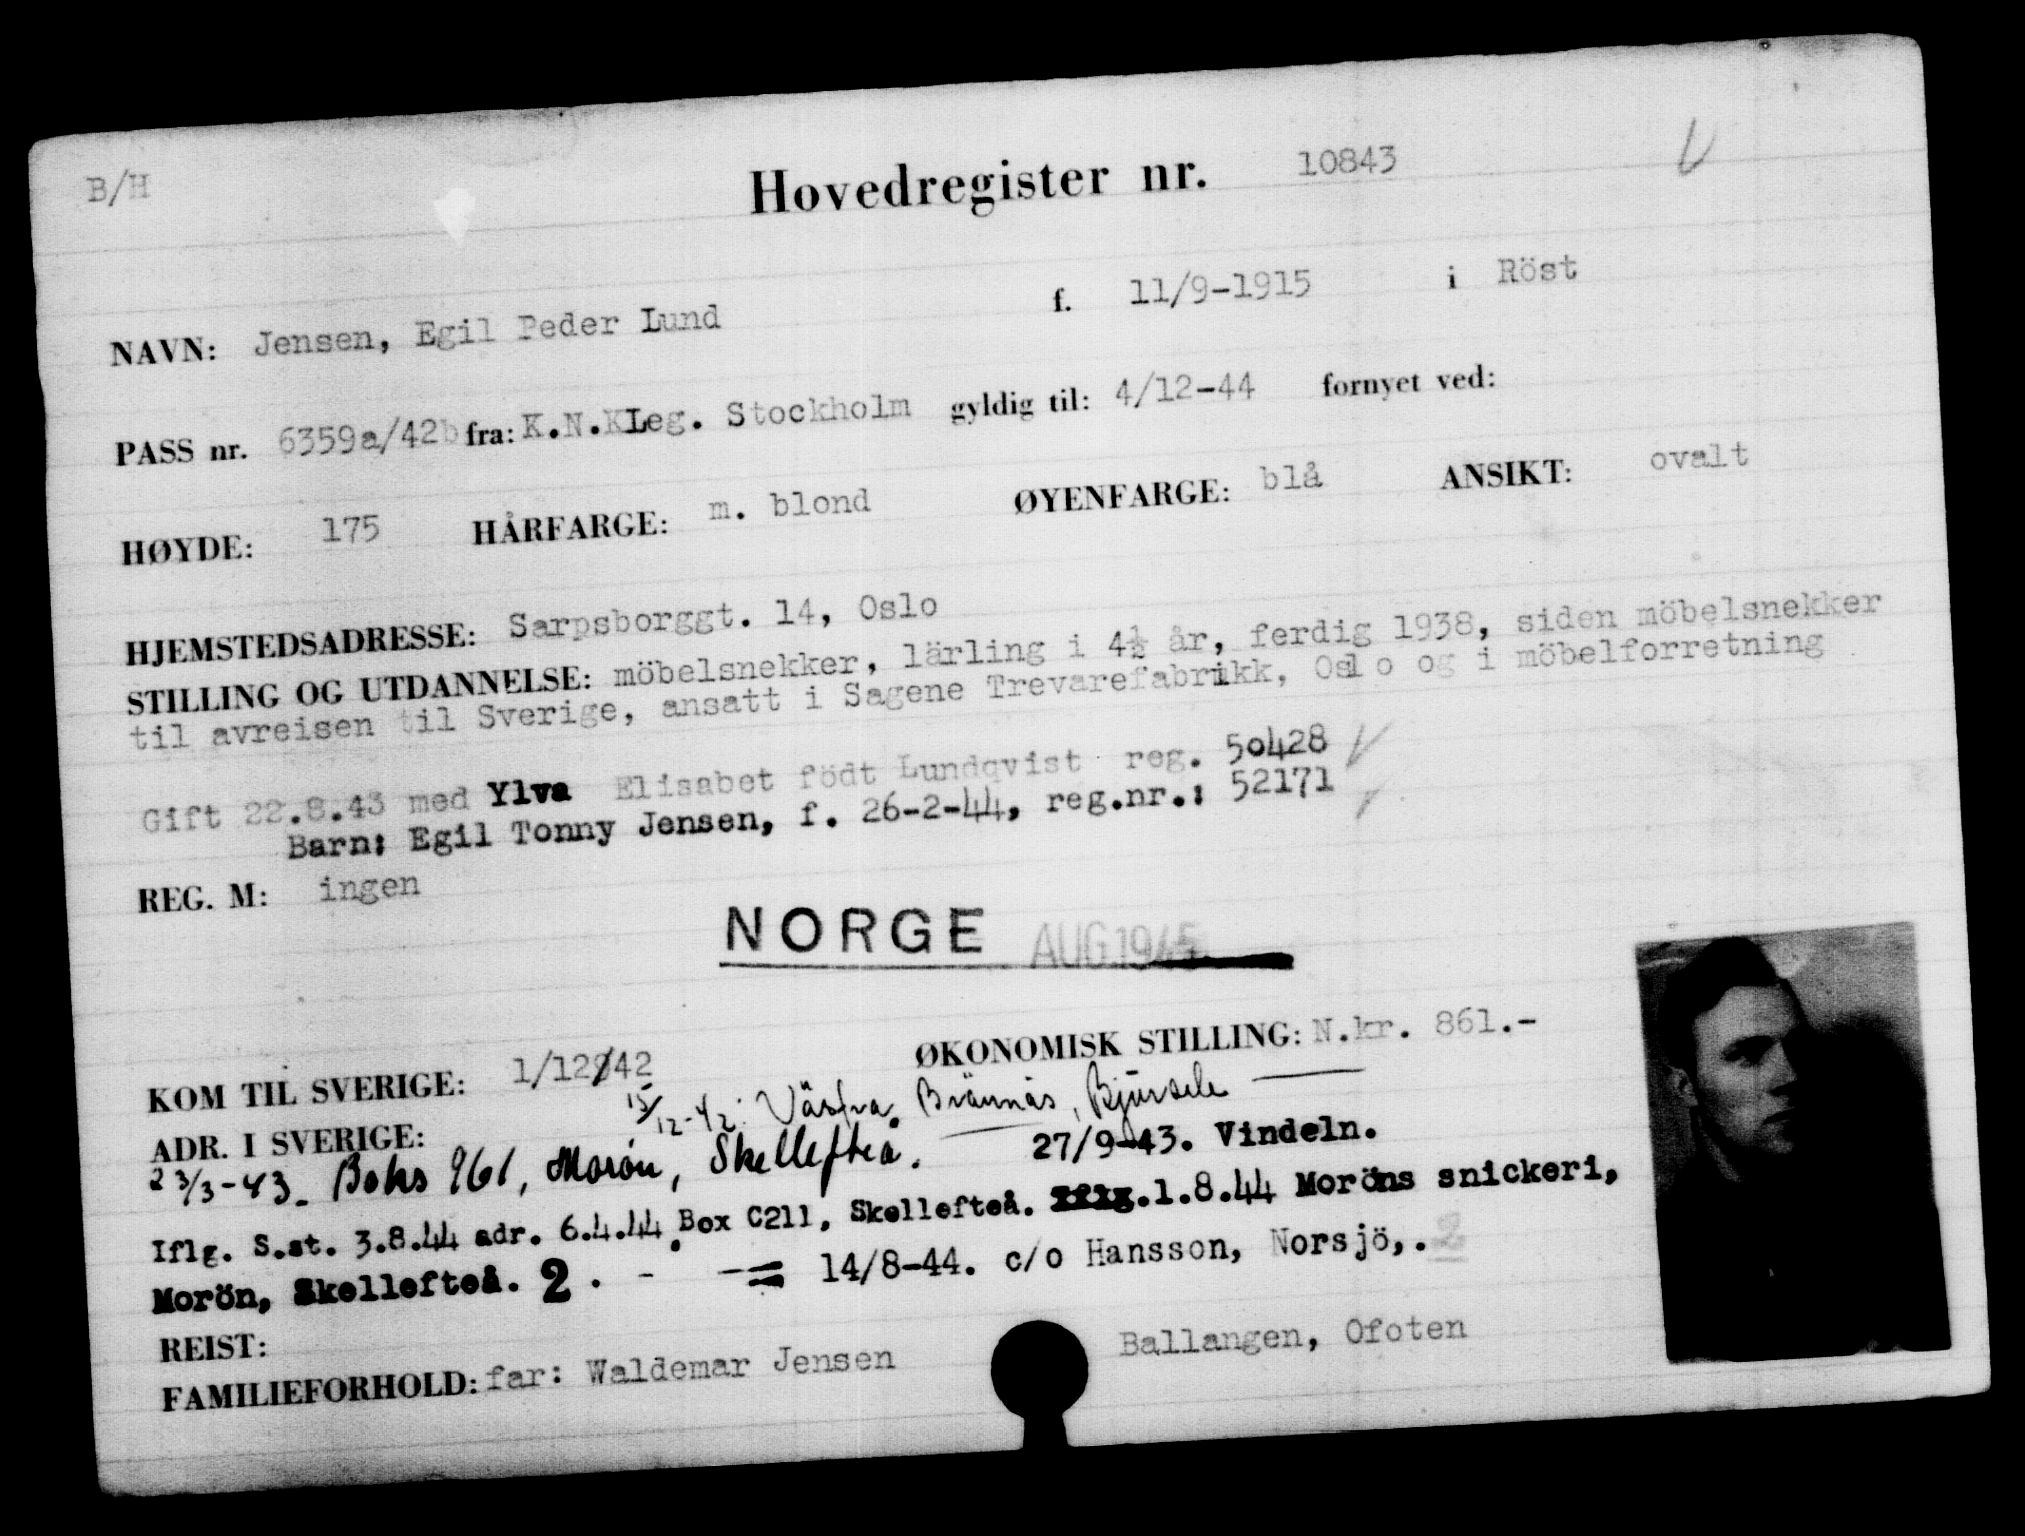 B/H
Hovedregister nr. 10843
NAVN: Jensen, Egil Peder Lund f. 11/9-1915 i Röst
PASS nr. 6359a/42b fra: K.N.KLeg. Stockholm gyldig til: 4/12-44 fornyet ved:
HØYDE: 175 HÅRFARGE: m. blond ØYENFARGE: blå ANSIKT: ovalt
HJEMSTEDSADRESSE: Sarpsborggt. 14, Oslo
STILLING OG UTDANNELSE: möbelsnekker, lärling i 4½ år, ferdig 1938, siden möbelsnekker
til avreisen til Sverige, ansatt i Sagene Trevarefabrikk, Oslo og i möbelforretning
Gift 22.8.43 med Ylva Elisabet födt Lundqvist reg. 50428
Barn: Egil Tonny Jensen, f. 26-2-44, reg.nr.: 52171
REG. M: ingen
NORGE AUG.1945
KOM TIL SVERIGE: 1/12/42 ØKONOMISK STILLING: N.kr. 861.-
15/12-42: Brännäs, Bjursele
ADR. I SVERIGE:
23/3-43. Boks 961, Morön, Skellefteå. 27/9-43. Vindeln.
Iflg. S.st. 3.8.44 adr. 6.4.44. Box C211, Skellefteå. Iflg.1.8.44 Moröns snickeri,
Morön, Skellefteå. 2. - -= 14/8-44. c/o Hansson, Norsjö,. 2
REIST:
FAMILIEFORHOLD: far: Waldemar Jensen Ballangen, Ofoten